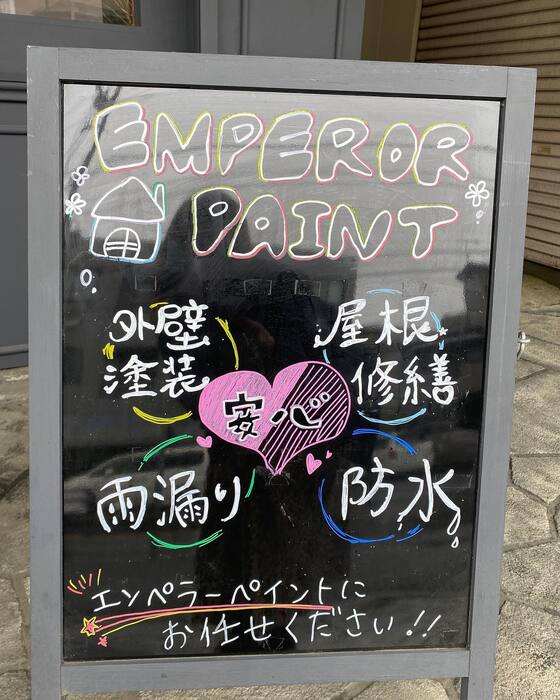 EMPEROR
PAINT
外壁
塗装
屋根
修繕
安心
雨漏り
防水
エンペラーペイントに
お任せください!!